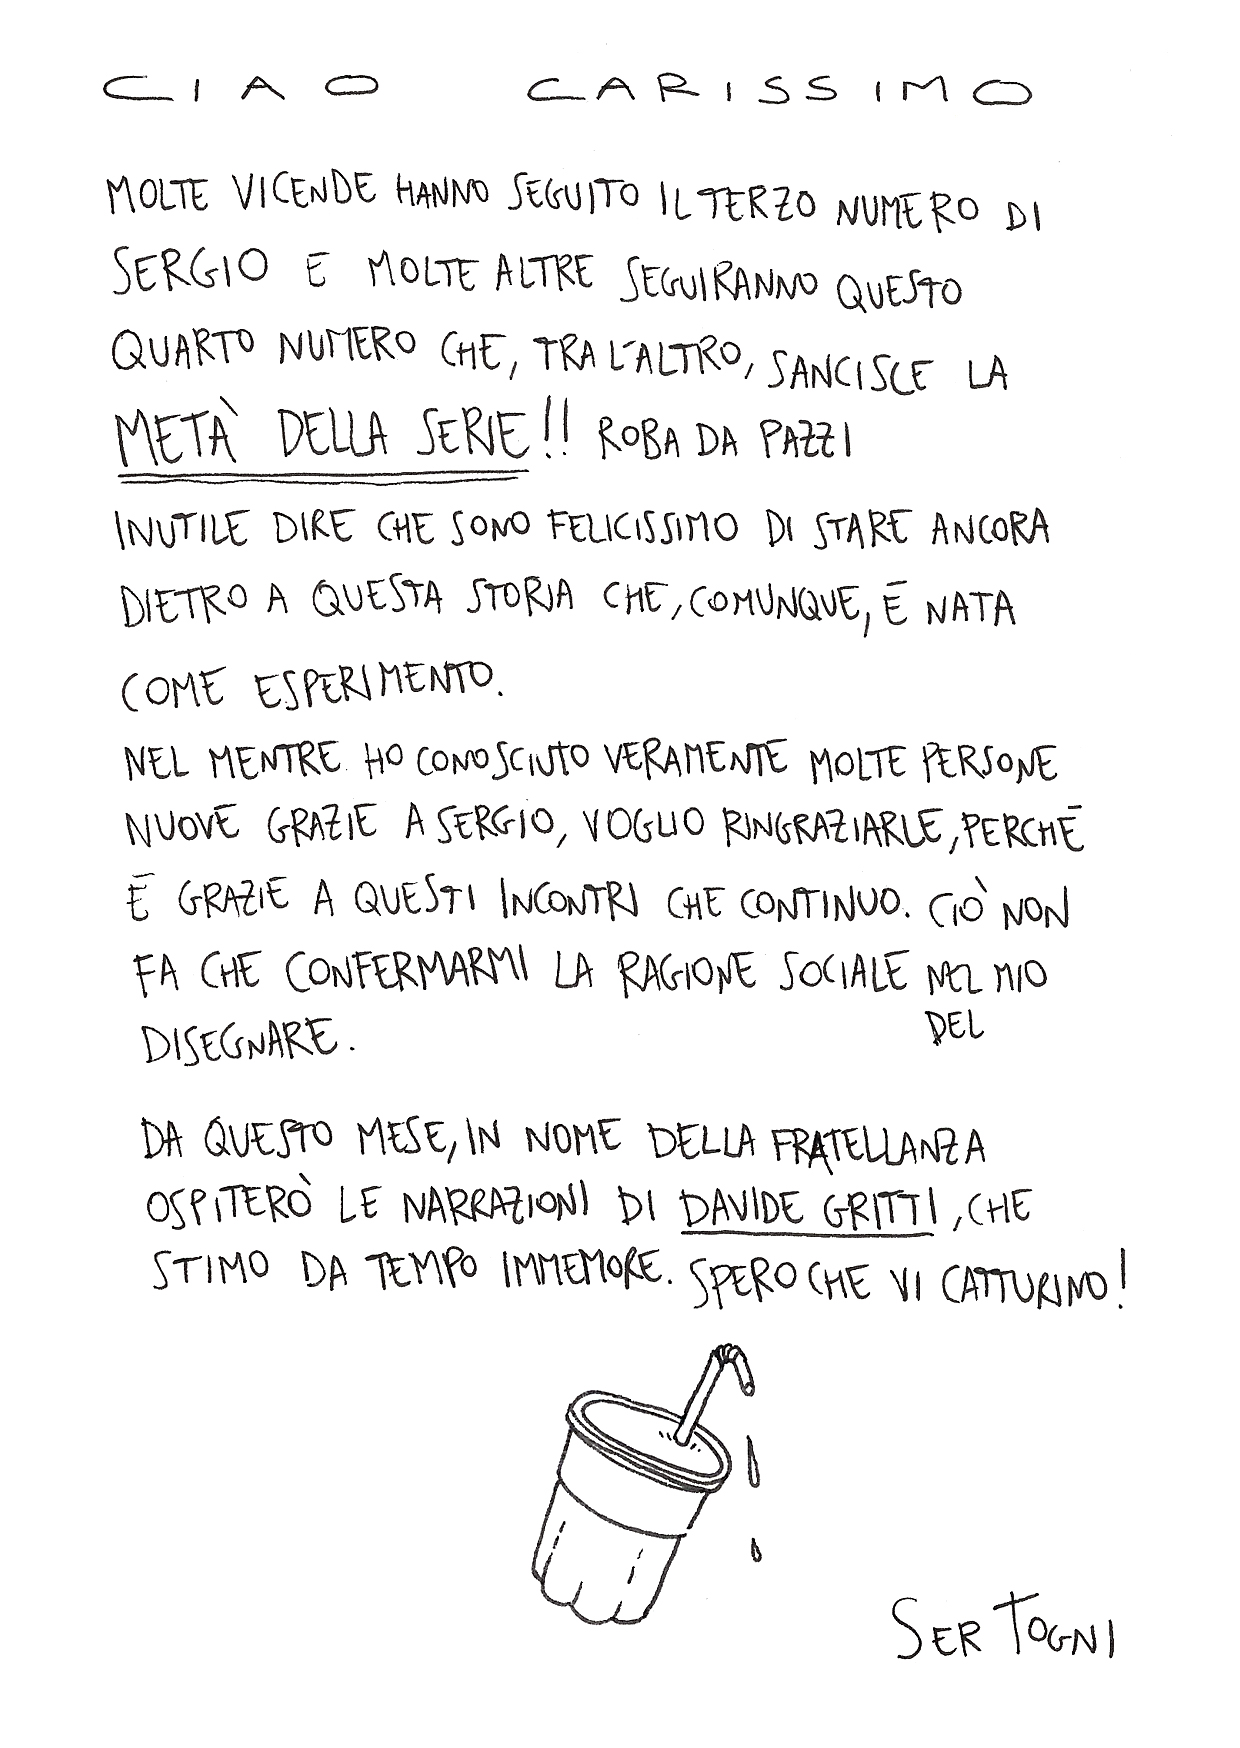 CIAO CARISSIMO
MOLTE VICENDE HANNO SEGUITO IL TERZO NUMERO DI
SERGIO E MOLTE ALTRE SEGUIRANNO QUESTO
QUARTO NUMERO CHE, TRA L'ALTRO, SANCISCE LA
METÀ DELLA SERIE!! ROBA DA PAZZI
INUTILE DIRE CHE SONO FELICISSIMO DI STARE ANCORA
DIETRO A QUESTA STORIA CHE, COMUNQUE, È NATA
COME ESPERIMENTO.
NEL MENTRE HO CONOSCIUTO VERAMENTE MOLTE PERSONE
NUOVE GRAZIE A SERGIO, VOGLIO RINGRAZIARLE, PERCHÉ
È GRAZIE A QUESTI INCONTRI CHE CONTINUO. CIÒ NON
FA CHE CONFERMARMI LA RAGIONE SOCIALE NEL MIO
DEL
DISEGNARE.
DA QUESTO MESE, IN NOME DELLA FRATELLANZA
OSPITERÒ LE NARRAZIONI DI DAVIDE GRITTI, CHE
STIMO DA TEMPO IMMEMORE. SPERO CHE VI CATTURINO!
SER TOGNI